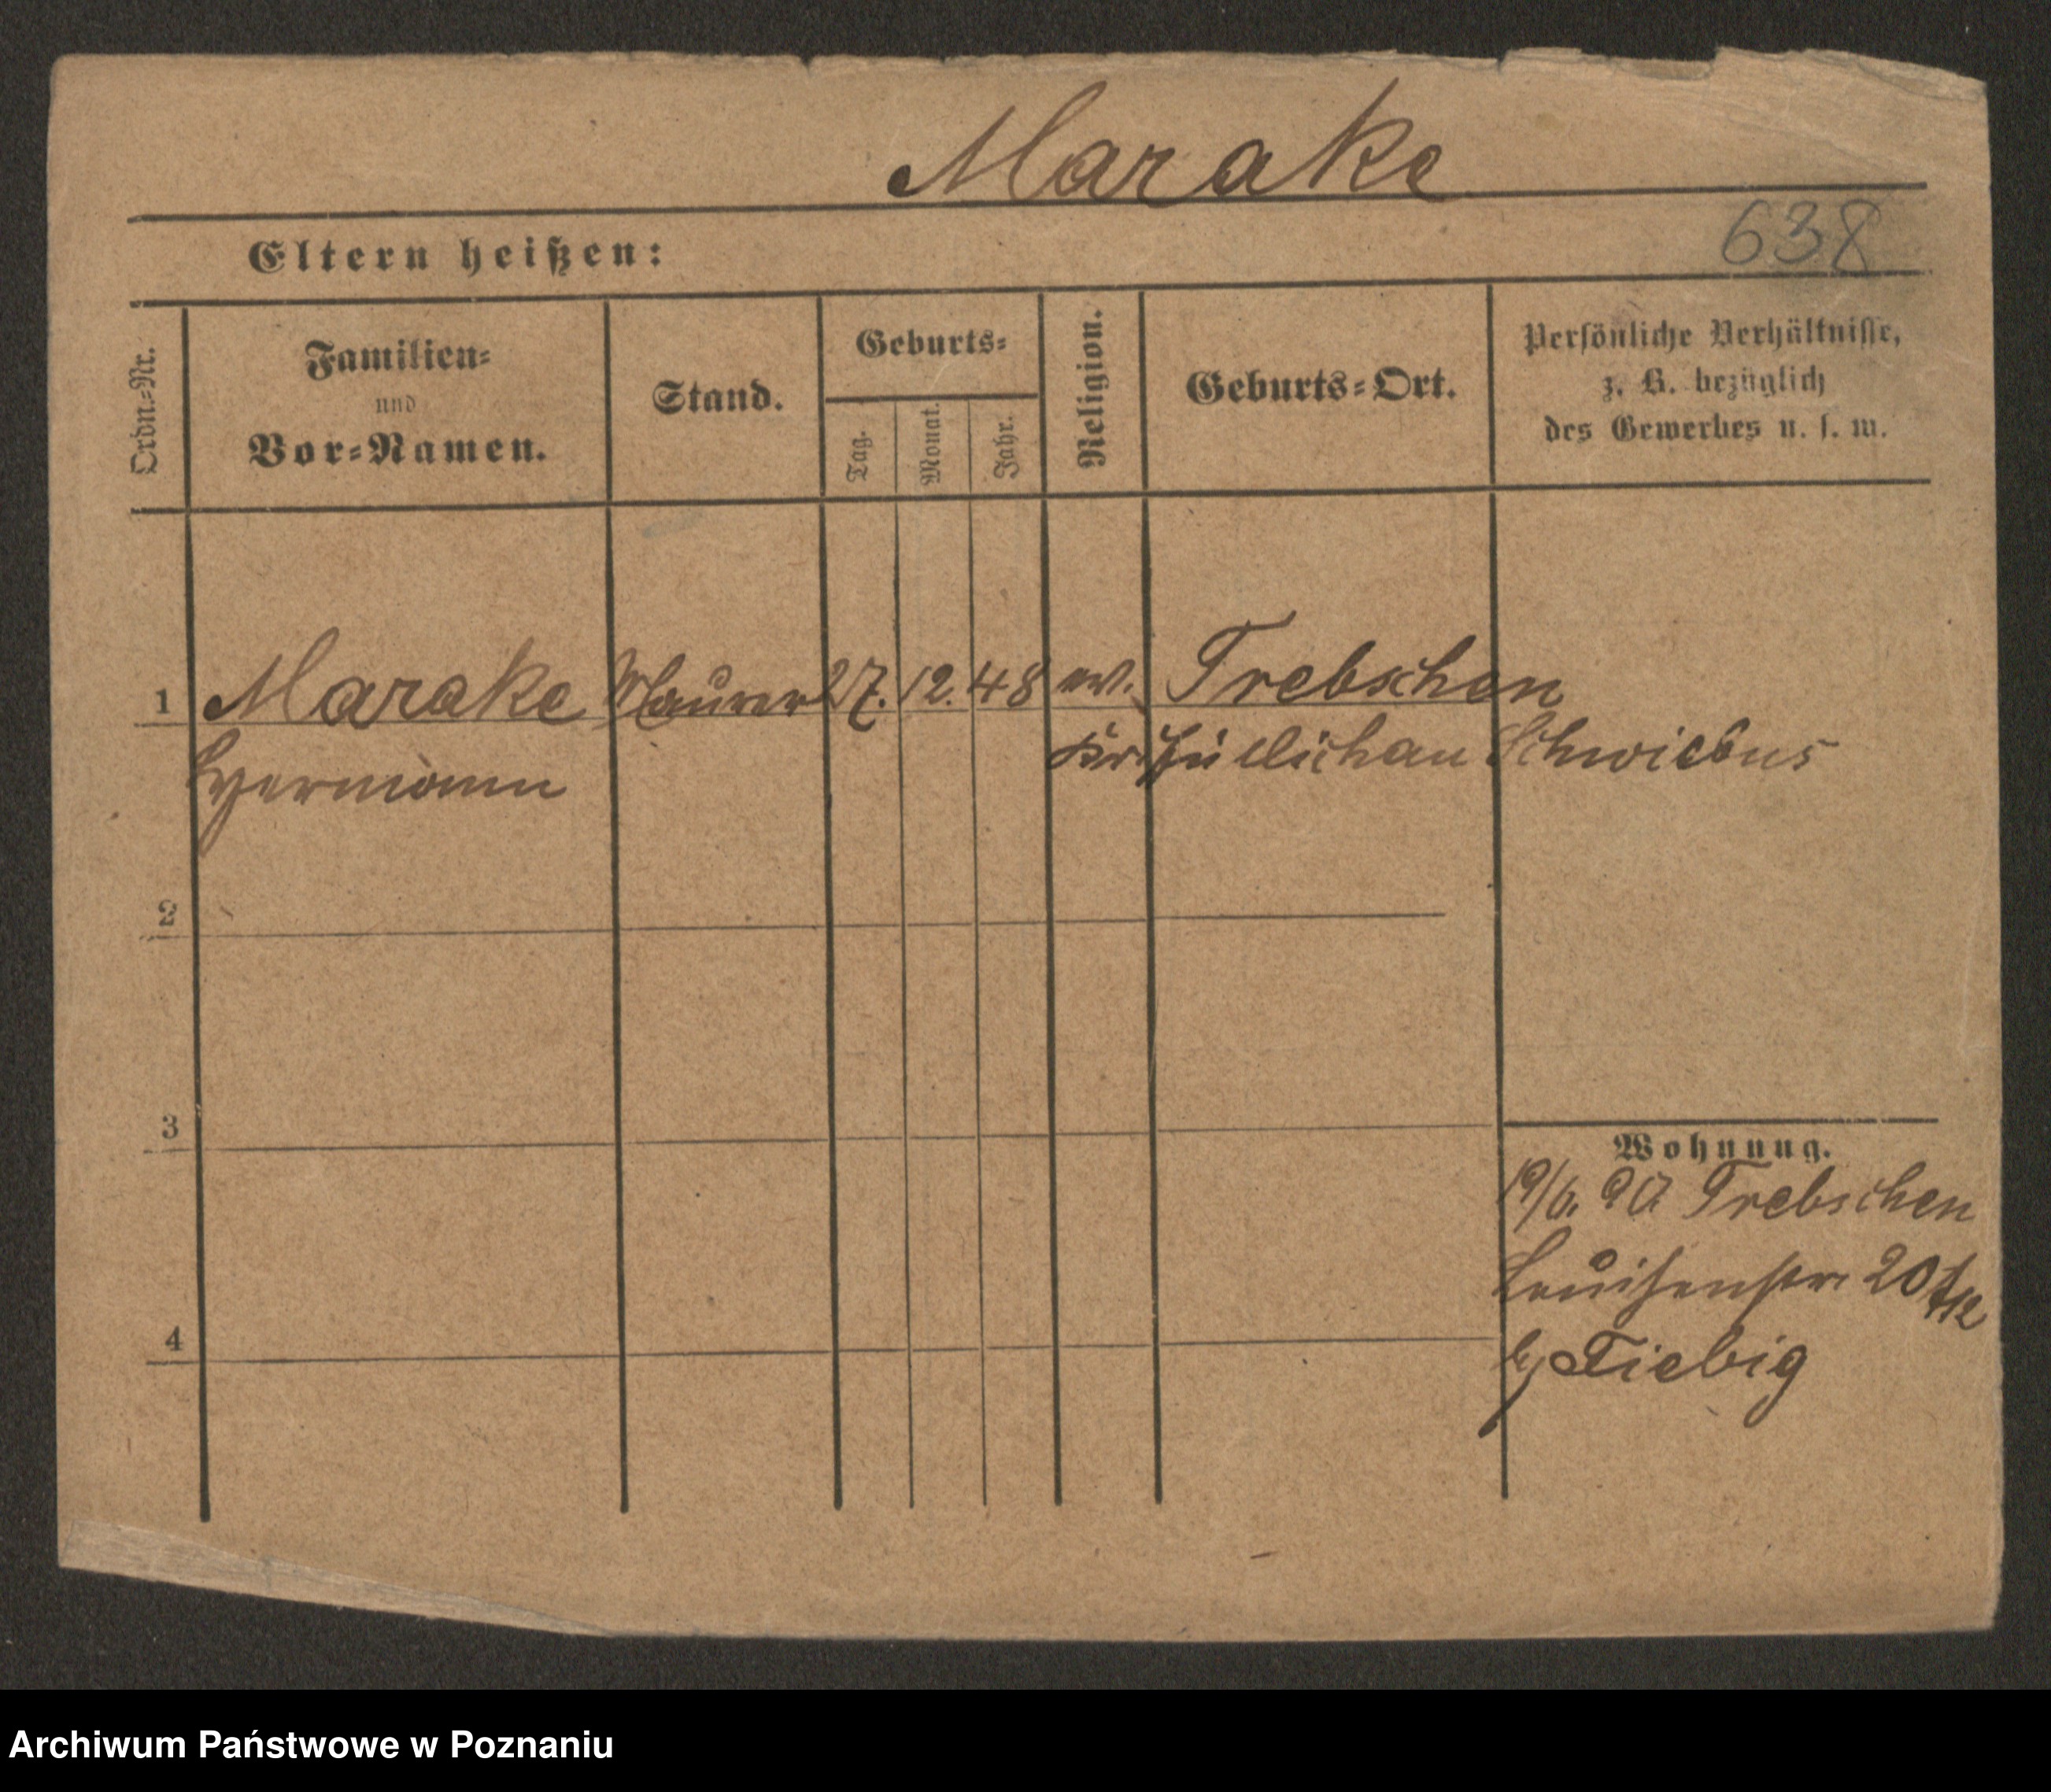 Marake
638
Eltern heißen:
Ordn.-Nr.
Familien-
und
Vor-Namen.
Stand.
Geburts-
Tag.
Monat.
Jahr.
Religion.
Geburts-Ort.
Persönliche Verhältnisse,
z. B. bezüglich
des Gewerbes u. s. w.
1 Marake Maurer 27. 12. 48 ev. Trebschen
Hermann Kr. Züllichau Schwiebus
2
3
Wohnung.
19/6. 90 Trebschen
Louisenstr 20
4
b/ Fiebig
Archiwum Państwowe w Poznaniu